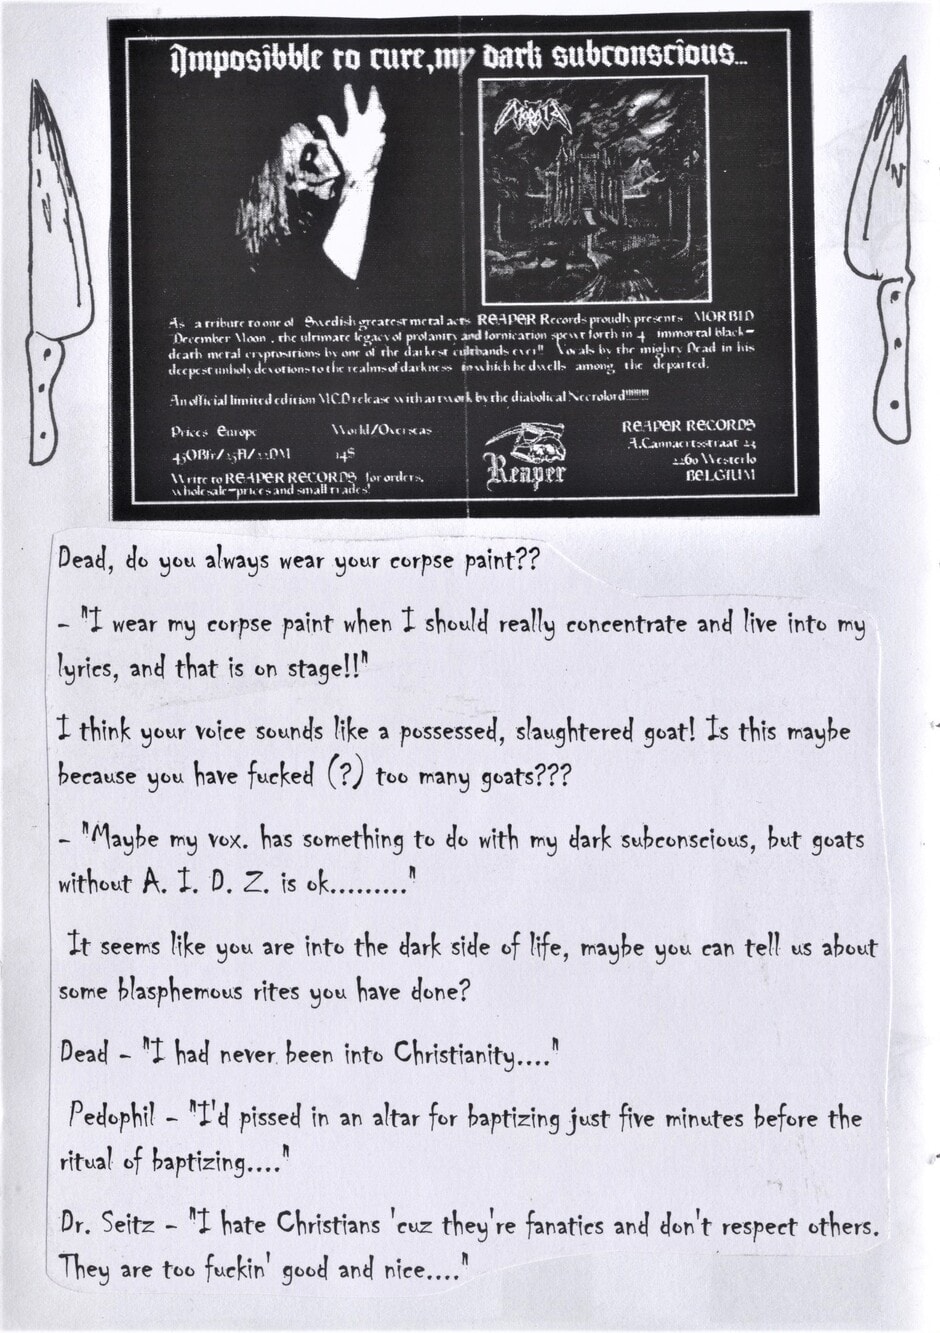 Impossibble to cure, my dark subconscious...
MORBID
As a tribute to one of Swedish greatest metal acts REAPER Records proudly presents MORBID
December Moon , the ultimate legacy of profanity and fornication spewt forth in 4 immortal black-
death metal cryprositions by one of the darkest cultbands ever!! Vocals by the mighty Dead in his
deepest unholy devotions to the realms of darkness in which he dwells among the departed.
An official limited edition MCD release with artwork by the diabolical Necrolord!!!!!!!!!
Prices Europe World/Overseas
450Bfr/25Fl/22DM 14$
Write to REAPER RECORDS for orders,
wholesale-prices and small trades!
Reaper
REAPER RECORDS
A.Cannaertsstraat 23
2260 Westerlo
BELGIUM
Dead, do you always wear your corpse paint??
- "I wear my corpse paint when I should really concentrate and live into my
lyrics, and that is on stage!!"
I think your voice sounds like a possessed, slaughtered goat! Is this maybe
because you have fucked (?) too many goats???
- "Maybe my vox. has something to do with my dark subconscious, but goats
without A. I. D. Z. is ok........."
It seems like you are into the dark side of life, maybe you can tell us about
some blasphemous rites you have done?
Dead - "I had never been into Christianity...."
Pedophil - "I'd pissed in an altar for baptizing just five minutes before the
ritual of baptizing...."
Dr. Seitz - "I hate Christians 'cuz they're fanatics and don't respect others.
They are too fuckin' good and nice...."